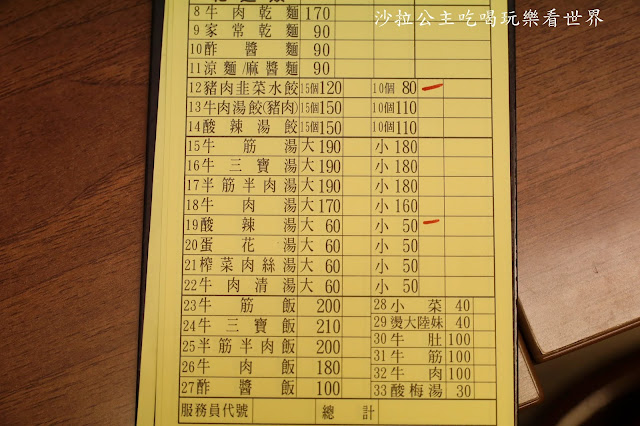 沙拉公主吃喝玩樂看世界
8 牛肉乾麵 170
9 家常乾麵 90
10 酢醬麵 90
11 涼麵/麻醬麵 90
12 豬肉韭菜水餃 15個 120 10個 80
13 牛肉湯餃(豬肉) 15個 150 10個 110
14 酸辣湯餃 15個 150 10個 110
15 牛筋湯 大 190 小 180
16 牛三寶湯 大 190 小 180
17 半筋半肉湯 大 190 小 180
18 牛肉湯 大 170 小 160
19 酸辣湯 大 60 小 50
20 蛋花湯 大 60 小 50
21 榨菜肉絲湯 大 60 小 50
22 牛肉清湯 大 60 小 50
23 牛筋飯 200
24 牛三寶飯 210
25 半筋半肉飯 200
26 牛肉飯 180
27 酢醬飯 100
28 小菜 40
29 燙大陸妹 40
30 牛肚 100
31 牛筋 100
32 牛肉 100
33 酸梅湯 30
服務員代號 總計